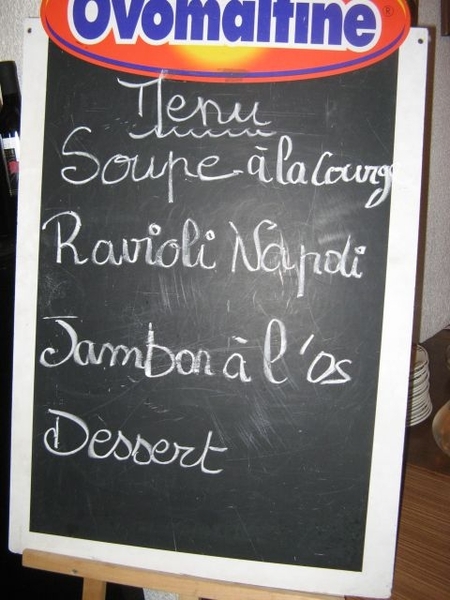 Ovomaltine®
Menu
Soupe à la Courge
Ravioli Napoli
Jambon à l'os
Dessert